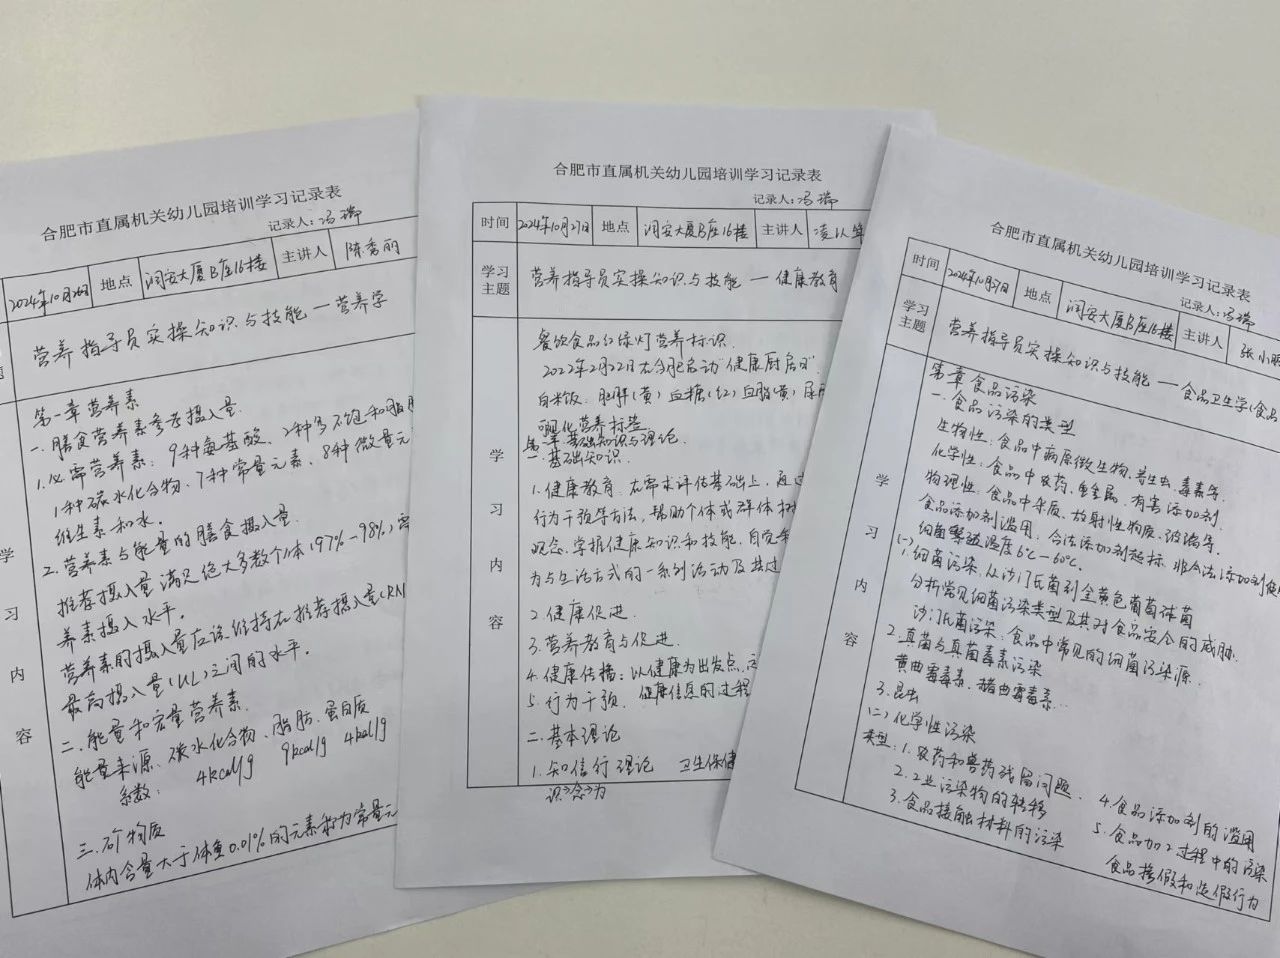 合肥市直属机关幼儿园培训学习记录表
记录人：冯瑞
2024年10月26日 地点 润安大厦B座16楼 主讲人 陈秀丽
营养指导员实操知识与技能—营养学
学 习 内 容
第一章营养素
一、膳食营养素参考摄入量.
1.必需营养素：9种氨基酸、2种多不饱和脂肪
1种碳水化合物、7种常量元素、8种微量元
维生素和水。
2.营养素与能量的膳食摄入量
推荐摄入量满足绝大多数个体(97%-98%)
养素摄入水平。
营养素的摄入量应该维持在推荐摄入量(RN
最高摄入量(UL)之间的水平。
二、能量和宏量营养素.
能量来源、碳水化合物、脂肪、蛋白质
系数： 4kcal/g 9kcal/g 4kcal/g
三、矿物质
体内含量大于体重0.01%的元素称为常量元
合肥市直属机关幼儿园培训学习记录表
记录人：冯瑞
时间 2024年10月27日 地点 润安大厦B座16楼 主讲人
学习主题 营养指导员实操知识与技能—健康教育
学 习 内 容
餐饮食品红绿灯营养标识.
2022年2月22日在合肥启动"健康厨房
白米饭：肥胖(黄)血糖(红)血脂(黄)尿
可视化营养标签
第一章基础知识与理论.
一.基础知识.
1.健康教育：在需求评估基础上，通过
行为干预等方法，帮助个体或群体
观念、掌握健康知识和技能，自觉
为与生活方式的一系列活动及其过
2.健康促进.
3.营养教育与促进.
4.健康传播：以健康为出发点，
健康信息的过程
5.行为干预.
二.基本理论
1.知信行理论 卫生保健
识>念>为
合肥市直属机关幼儿园培训学习记录表
记录人：冯瑞
时间 2024年10月27日 地点 润安大厦B座16楼 主讲人 张小
学习主题 营养指导员实操知识与技能—食品卫生学(食品
学 习 内 容
第一章食品污染
一.食品污染的类型
生物性：食品中病原微生物、寄生虫、毒素等.
化学性：食品中农药、重金属、有害添加剂.
物理性：食品中杂质、放射性物质、玻璃等.
食品添加剂滥用：合法添加剂超标，非合法添加剂使
细菌繁殖温度6℃-60℃.
(一)
1.细菌污染，从沙门氏菌到金黄色葡萄球菌
分析常见细菌污染类型及其对食品安全的威胁.
沙门氏菌污染：食品中常见的细菌污染源.
2.真菌与真菌毒素污染
黄曲霉毒素、赭曲霉毒素..
3.昆虫
(二)化学性污染
类型：1.农药和兽药残留问题.
2.工业污染物的转移
3.食品接触材料的污染
4.食品添加剂的滥用
5.食品加工过程中的污染
食品掺假和造假行为